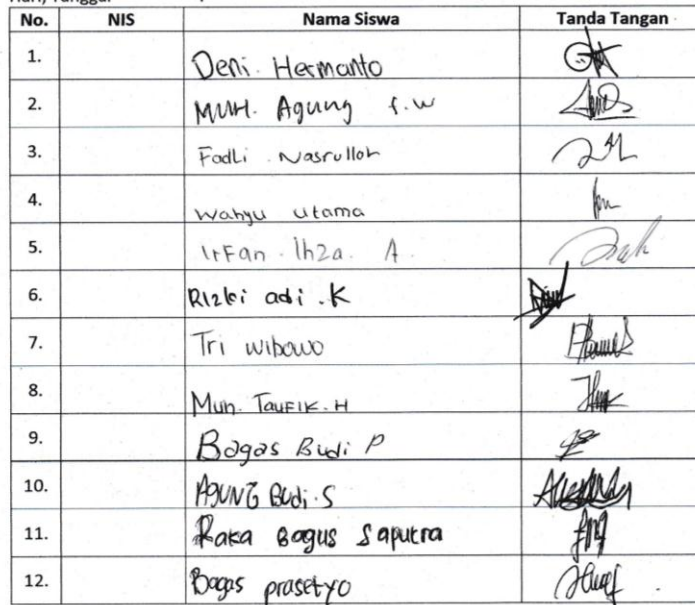 Hari, Tanggal
No. NIS Nama Siswa Tanda Tangan
1. Deni. Hermanto
2. MUH. Agung S.W
3. Fadli. Nasrulloh
4. Wahyu utama
5. IrFan. Ihza. A.
6. Rizki adi.K
7. Tri wibowo
8. Muh. TauFIK.H
9. Bagas Budi P
10. AgUNG Budi.S
11. Raka Bagus Saputra
12. Bagas prasetyo